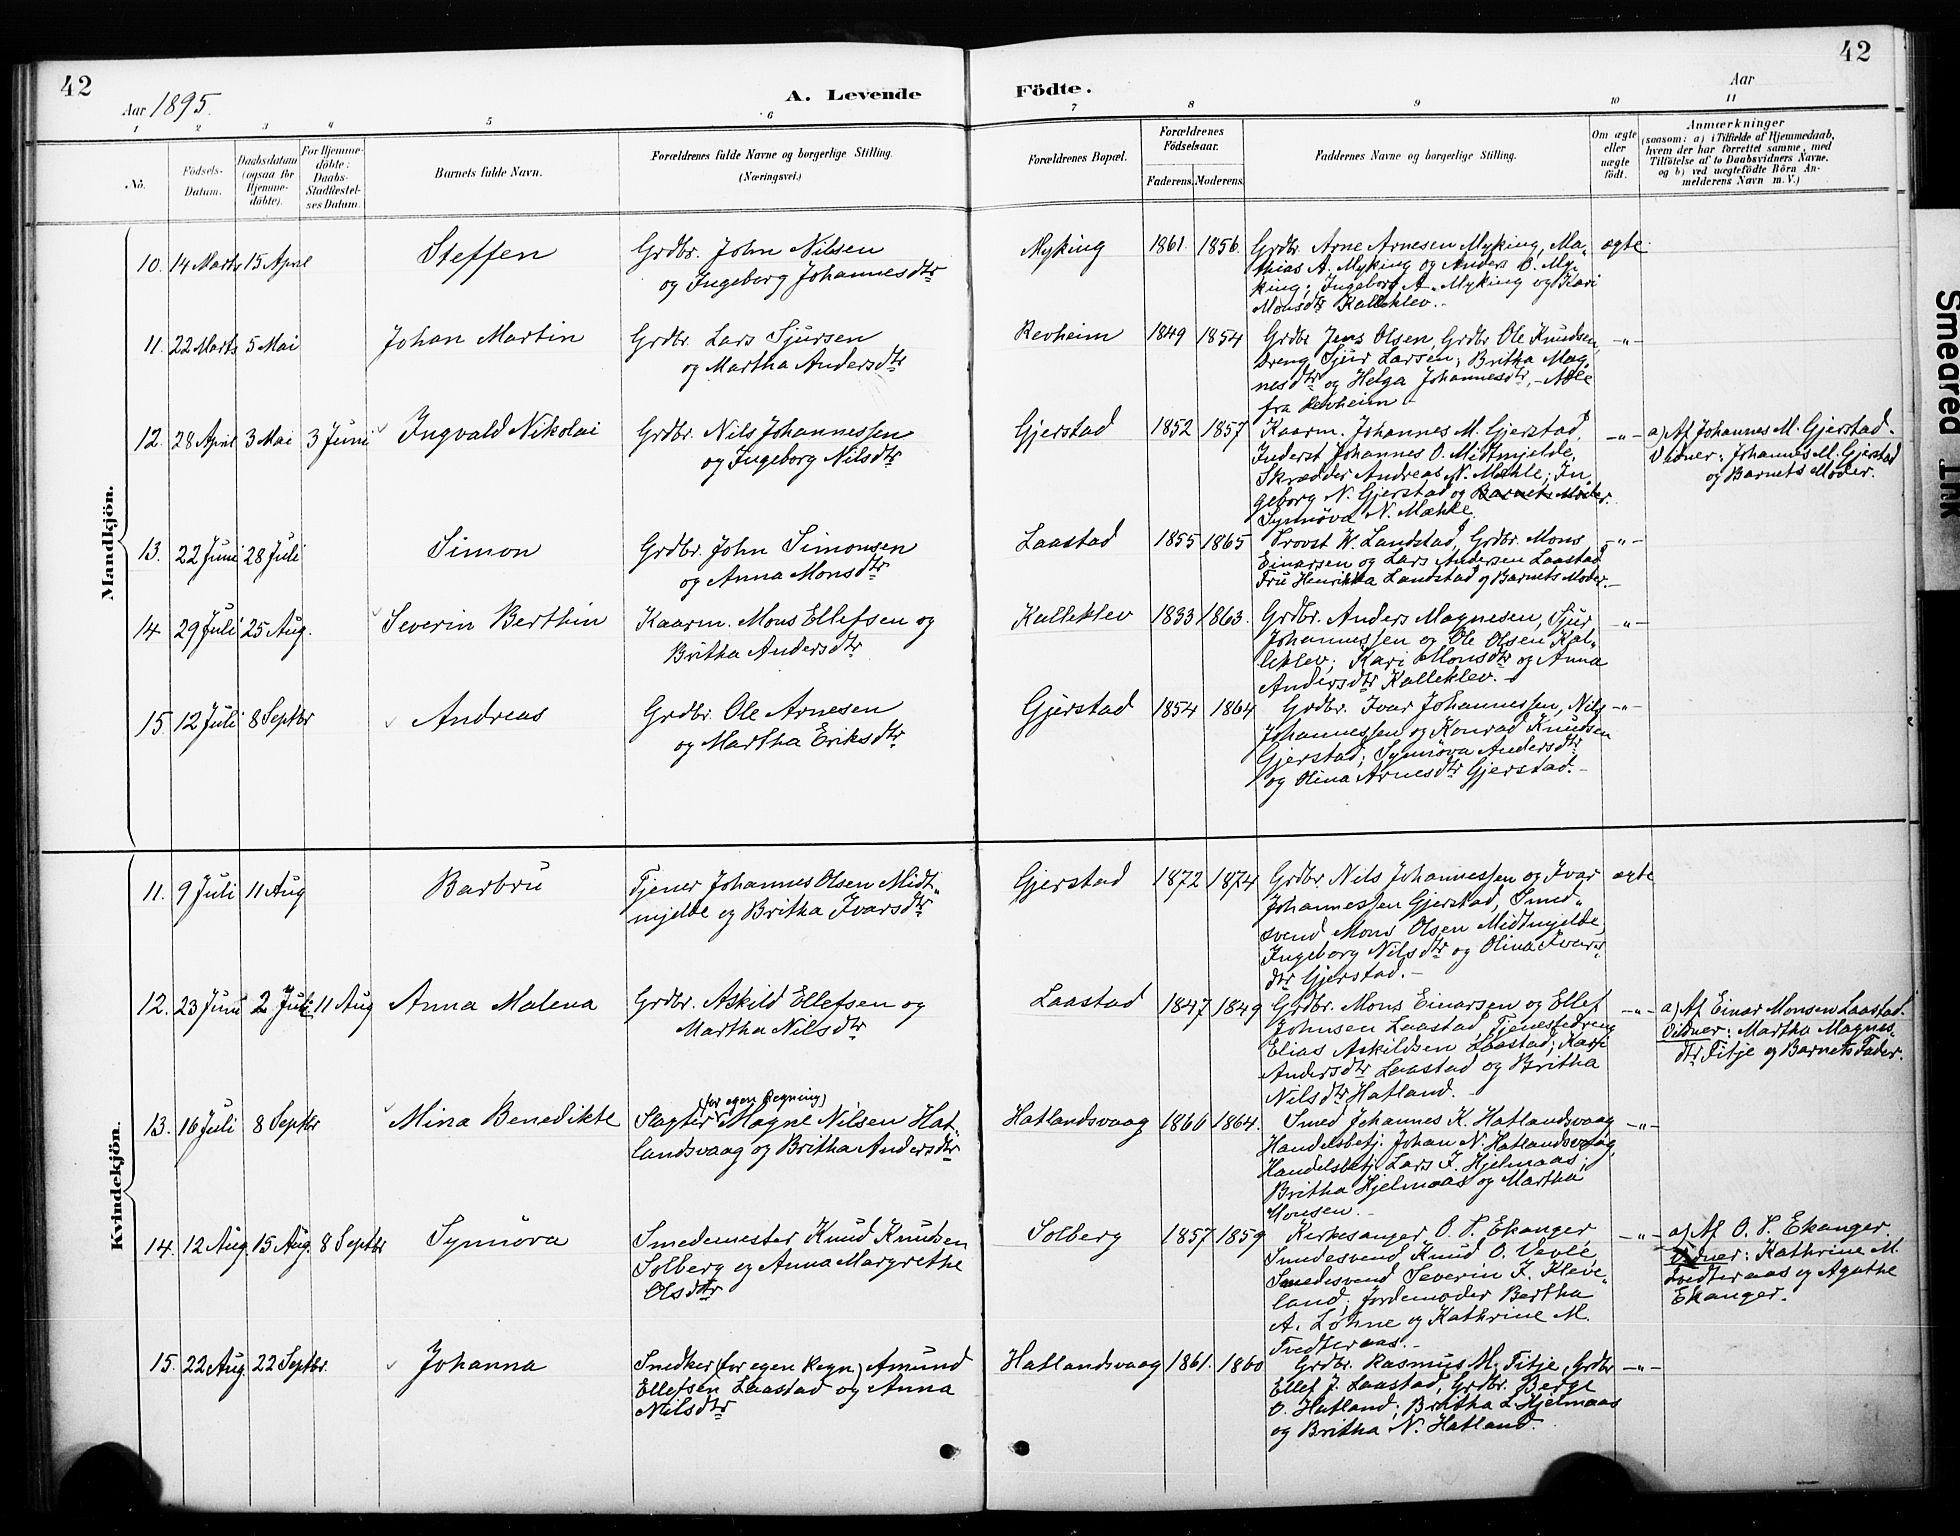 42
42
Aar 1895.
A. Levende
Födte.
Aar
1 2 3 4 5 6
7 8 9 10 11
No.
Födsels-
Datum.
Daabsdatum
(ogsaa for
Hjemme-
döbte).
For Hjemme-
döbte:
Daabs-
Stadfæstel-
ses Datum.
Barnets fulde Navn.
Forældrenes fulde Navne og borgerlige Stilling.
(Næringsvei.)
Forældrenes Bopæl.
Forældrenes
Födselsaar.
Faderens. Moderens.
Faddernes Navne og borgerlige Stilling.
Om ægte
eller
uægte
födt.
Anmærkninger
(saasom: a) i Tilfælde af Hjemmedaab,
hvem der har forrettet samme, med
Tilföielse af to Daabsvidners Navne.
og b) ved uægtefödte Börn An-
melderens Navn m. V.)
Mandkjön.
10. 14 Marts 15 April Steffen Grdbr. John Nilsen
og Ingeborg Johannesdtr
Myking 1861. 1856. Grdbr. Arne Arnesen Myking, Ma-
thias A. Myking og Anders B. My-
king; Ingeborg A. Myking og Kari
Monsdtr Kalleklev.-
ægte.
11. 22 Marts 5 Mai Johan Martin Grdbr. Lars Sjursen
og Martha Andersdtr
Revheim 1849 1854 Grdbr Jens Olsen, Grdbr Ole Knudsen,
Dreng Sjur Larsen; Britha Mag-
nesdtr og Helga Johannesdtr, - Alle
fra Revheim -
-"-
12. 28 April 3 Mai 3 Juni Ingvald Nikolai Grdbr. Nils Johannessen
og Ingeborg Nilsdtr
Gjerstad 1852 1857 Kaarm. Johannes M. Gjerstad,
Inderst Johannes O. Midtmjelde,
Skrædder Andreas N. Mæhle; In-
geborg N. Gjerstad og Barnets Moder.
Synnöva N. Mæhle.
-"- a) Af Johannes M. Gjerstad.
Vidner: Johannes M. Gjerstad
og Barnets Moder.
13. 22 Juni 28 Juli Simon Grdbr. John Simonsen
og Anna Monsdtr
Laastad 1855 1865 Provst W. Landstad, Grdbr. Mons
Einarsen og Lars Andersen Laastad
Fru Henrikka Landstad og Barnets Moder.-
-"-
14 29 Juli 25 Aug. Severin Berthin Kaarm. Mons Ellefsen og
Britha Andersdtr
Kalleklev 1833 1863. Grdbr. Anders Magnesen, Sjur
Johannessen og Ole Olsen Kal-
leklev; Kari Monsdtr og Anna
Andersdtr Kalleklev.-
-"-
15 12 Juli 8 Septbr Andreas Grdbr. Ole Arnesen
og Martha Eriksdtr
Gjerstad 1854 1864 Grdbr. Ivar Johannessen, Nils
Johannessen og Konrad Knudsen
Gjerstad; Synnöva Andersdtr
og Olina Arnesdtr Gjerstad.-
-"-
Kvindekjön.
11. 9 Juli 11 Aug Barbru Tjener Johannes Olsen Midt-
mjelde og Britha Ivarsdtr
Gjerstad 1872 1874 Grdbr. Nils Johannessen og Ivar
Johannessen Gjerstad, Smed-
svend Mons Olsen Midtmjelde,
Ingeborg Nilsdtr og Olina Ivars-
dtr Gjerstad.-
ægte
12. 23 Juni 2 Juli 11 Aug Anna Malena Grdbr. Askild Ellefsen og
Martha Nilsdtr
Laastad 1847 1849 Grdbr. Mons Einarsen og Ellef
Johnsen Laastad, Tjenestedreng
Elias Askildsen Laastad; Kari
Andersdtr Laastad og Britha
Nilsdtr Hatland.-
-"- a) Af Einar Monsen Laastad.
Vidner: Martha Magnes-
dtr Titje og Barnets Fader.
13. 16 Juli 8 Septbr Mina Benedikte Slagter (for egen Regning) Magne Nilsen Hat-
landsvaag og Britha Andersdtr
Hatlandsvaag 1860 1864. Smed Johannes K. Hatlandsvaag
Handelsbetj. Johan N. Hatlandsvaag,
Handelsbetj. Lars J. Hjelmaas;
Britha Hjelmaas og Martha
Monsen.-
-"-
14. 12 Aug. 15 Aug. 8 Septbr Synnöva Smedemester Knud Knudsen
Solberg og Anna Margrethe
Olsdtr
Solberg 1857 1859 Kirkesanger O. S. Ekanger,
Smedesvend Knud O. Vevle,
Smedesvend Severin J. Kleve-
land; Jordemoder Bertha
A. Løhne og Kathrine M.
Tvedteraas.-
-"- a) Af O. S. Ekanger.
Vidner: Kathrine M.
Tvedteraas og Agathe
Ekanger.
15. 22 Aug. 22 Septbr. Johanna Snedker (for egen Regn) Amund
Ellefsen Laastad og Anna
Nilsdtr
Hatlandsvaag 1861. 1860 Grdbr. Rasmus M. Titje, Grdbr
Ellef J. Laastad, Grdbr. Berge
O. Hatland; Britha L. Hjelmaas
og Britha N. Hatland.
-"-
Smeared Ink